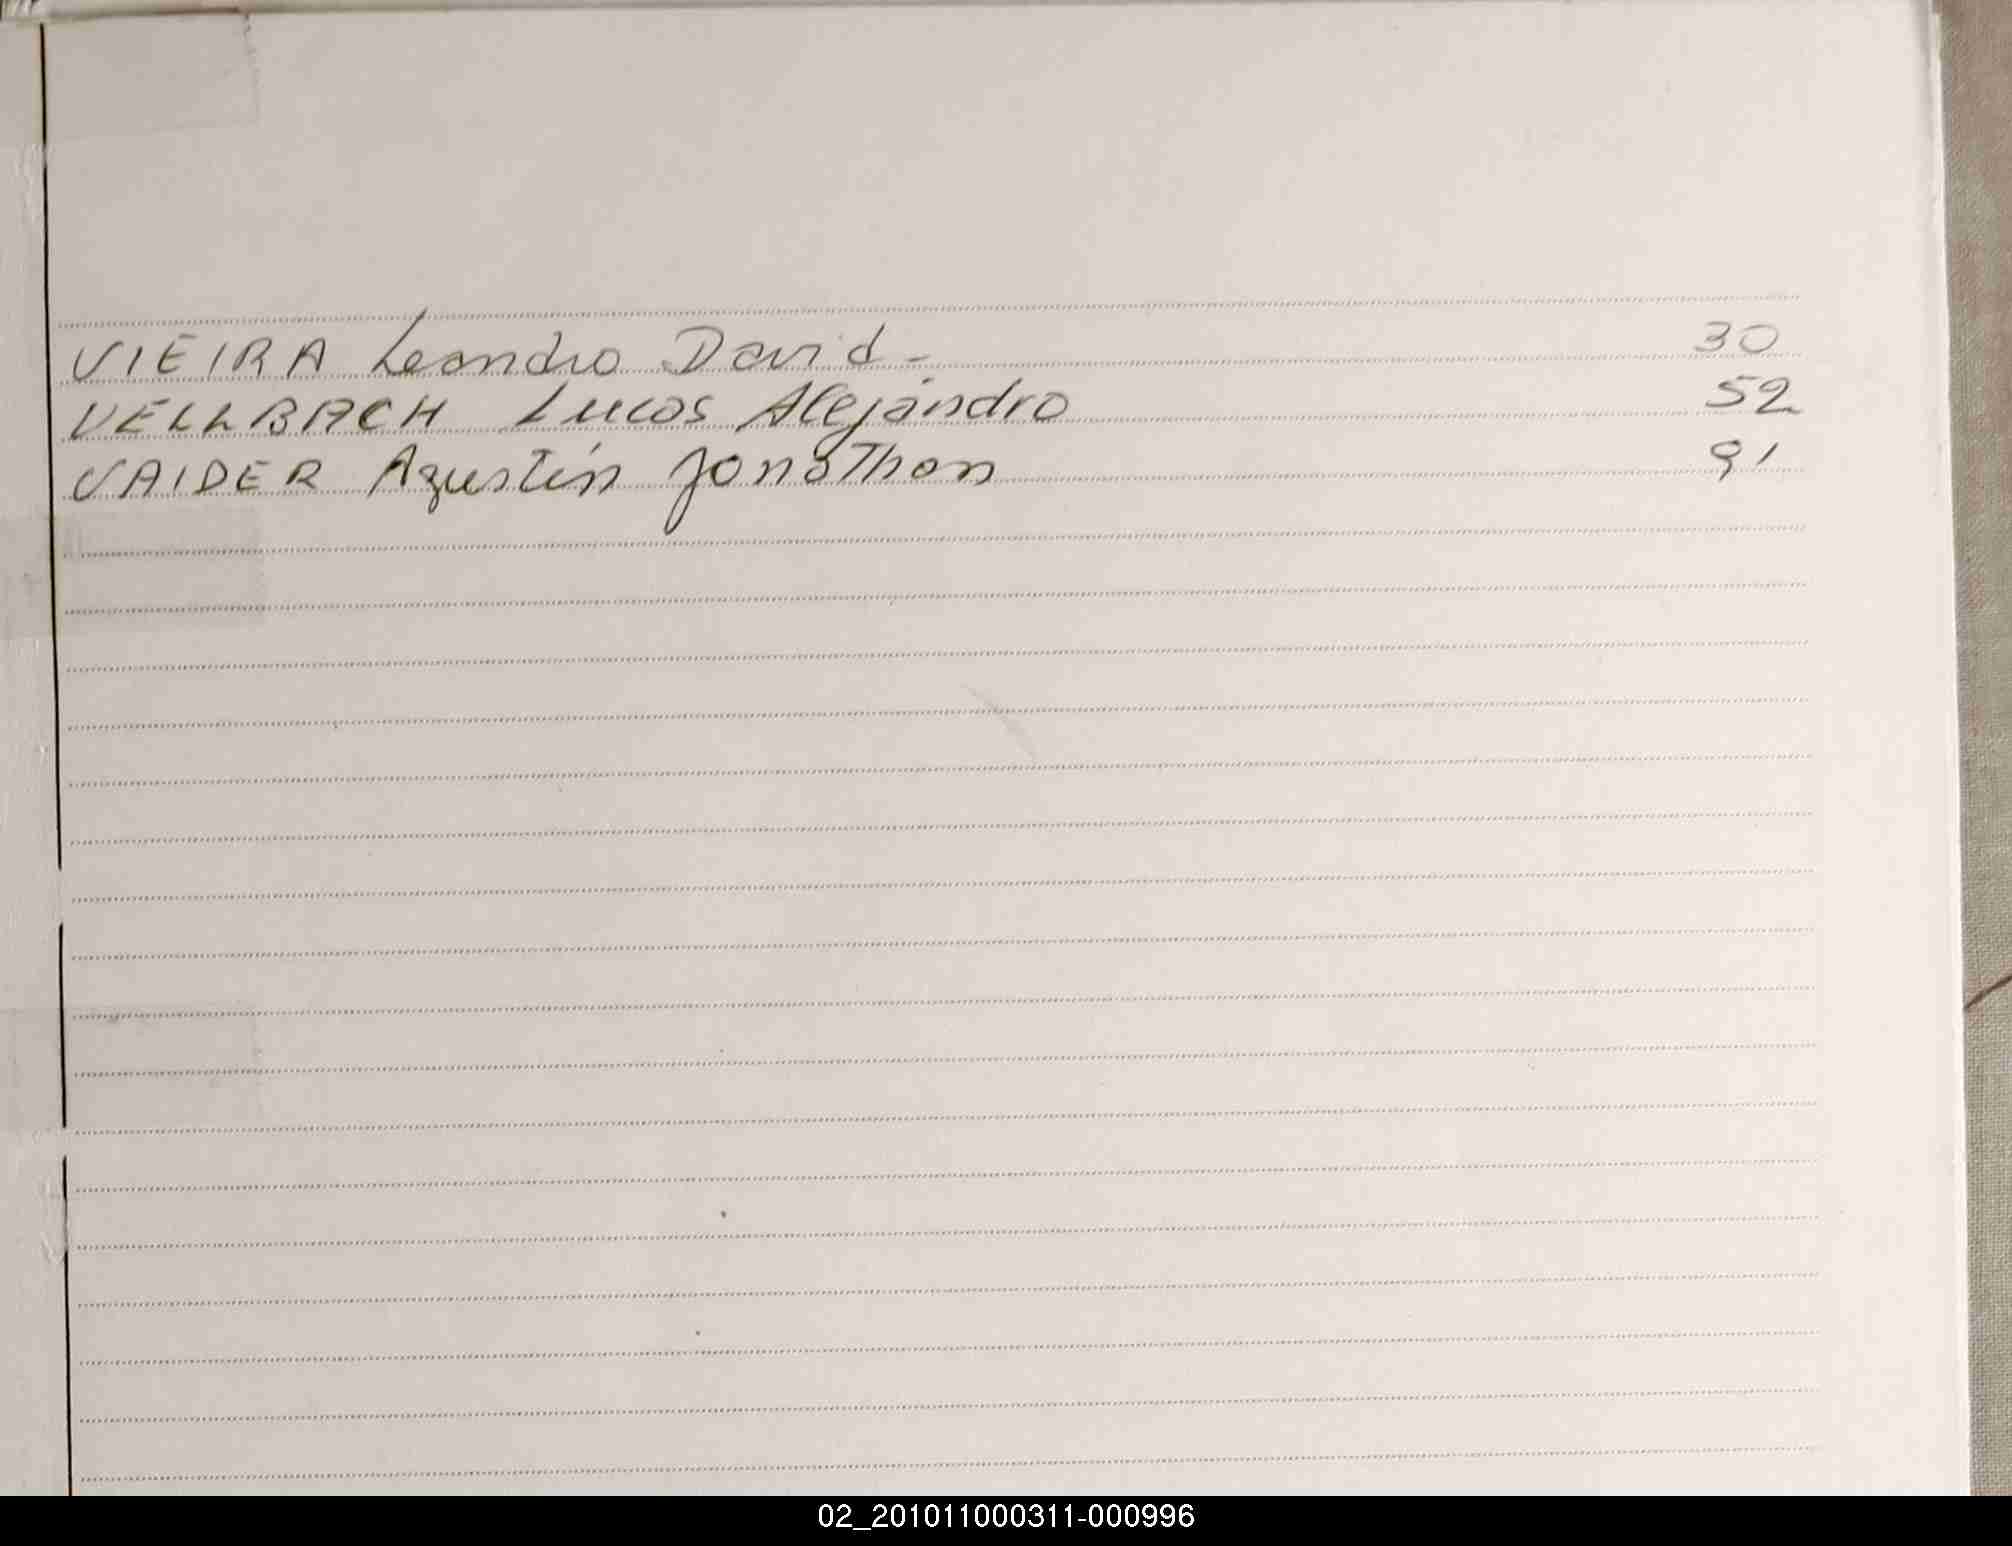 VIEIRA Leandro David - 30
VELLBACH Lucas Alejandro 52
VAIDER Agustín Jonathan 91
02_201011000311-000996